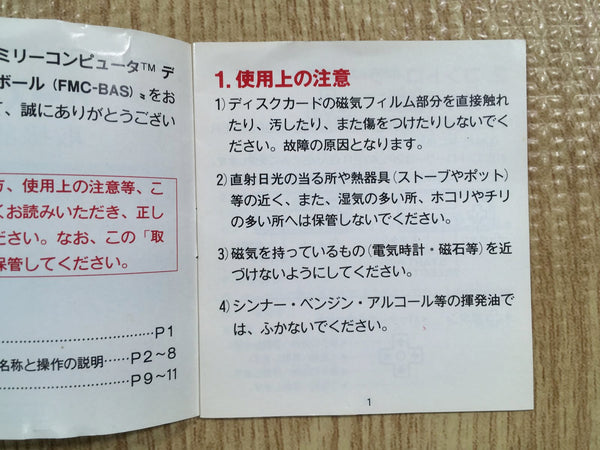 ミリーコンピュータ™ デ
ボール (FMC-BAS)〟をお
て、誠にありがとうござい
方、使用上の注意等、こ
くお読みいただき、正し
ださい。なお、この「取
保管してください。
P1
名称と操作の説明……P2~8
P9~11
1. 使用上の注意
1) ディスクカードの磁気フィルム部分を直接触れ
たり、汚したり、また傷をつけたりしないでく
ださい。故障の原因となります。
2) 直射日光の当る所や熱器具(ストーブやポット)
等の近く、また、湿気の多い所、ホコリやチリ
の多い所へは保管しないでください。
3) 磁気を持っているもの(電気時計・磁石等)を近
づけないようにしてください。
4) シンナー・ベンジン・アルコール等の揮発油で
は、ふかないでください。
1